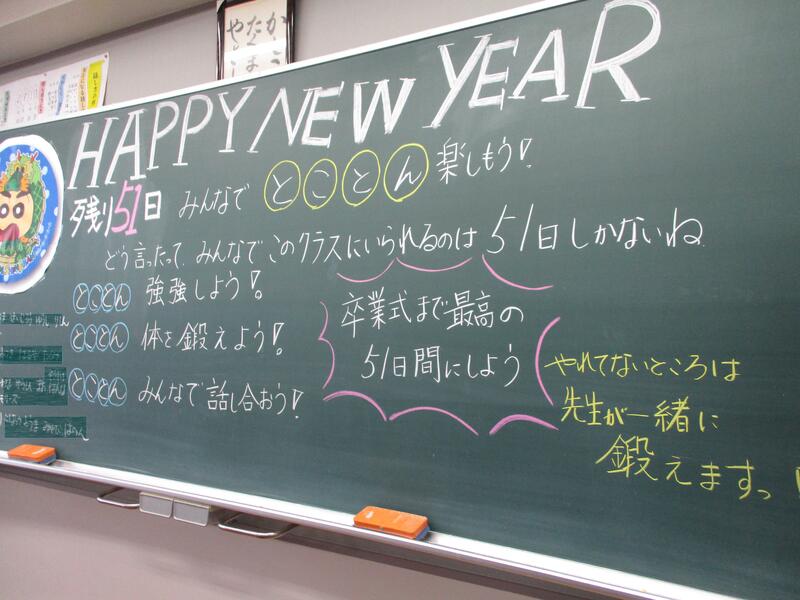 HAPPY NEW YEAR
残り51日 みんなで とことん 楽しもう!
どう言ったって、みんなでこのクラスにいられるのは 51日しかないね
とことん 強強しよう!
とことん 体を鍛えよう!
とことん みんなで話し合おう!
卒業式まで最高の
51日間にしよう
やれてないところは
先生が一緒に
鍛えますっ